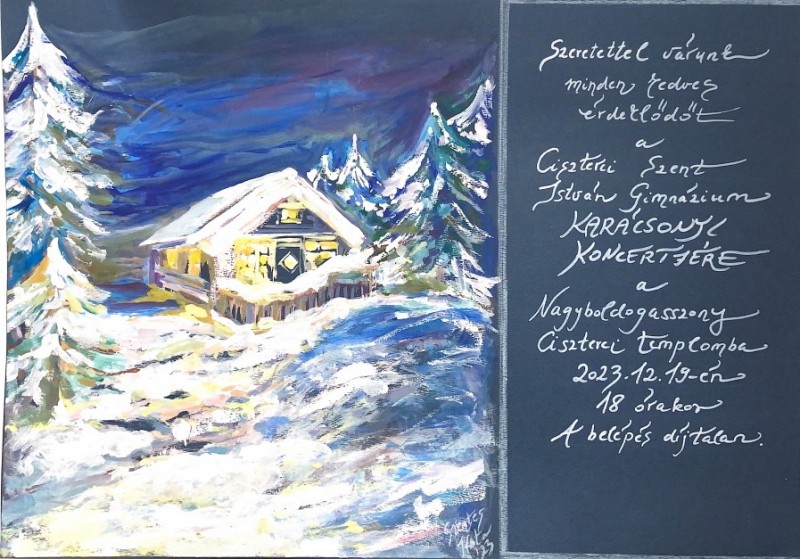 Szeretettel várunk
minden kedves
érdeklődőt
a
Ciszterci Szent
István Gimnázium
KARÁCSONYI
KONCERTJÉRE
a
Nagyboldogasszony
Ciszterci templomba
2023.12.19-én
18 órakor
A belépés díjtalan.